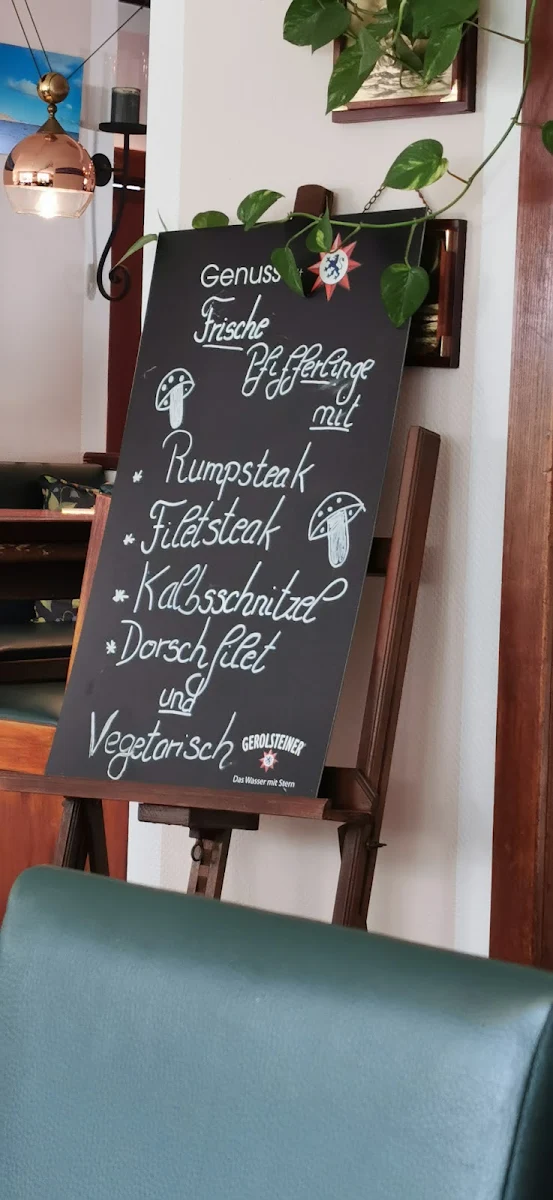 Genuss
Frische
Pfifferlinge
mit
* Rumpsteak
* Filetsteak
* Kalbsschnitzel
* Dorschfilet
und
Vegetarisch
GEROLSTEINER
Das Wasser mit Stern